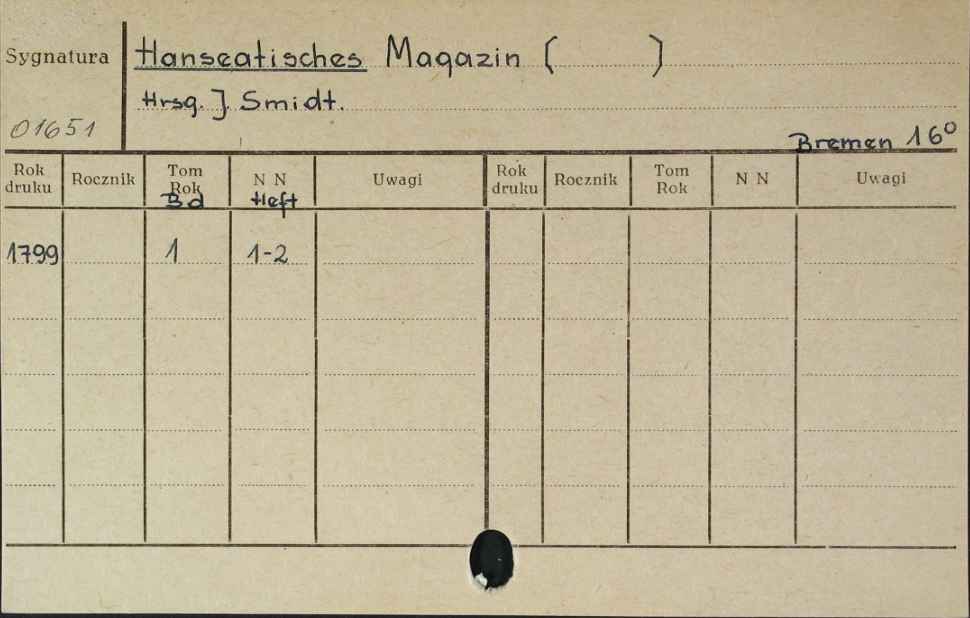 Sygnatura
Hanseatisches Magazin ( )
Hrsg. J. Smidt.
01651
Bremen 16°
Rok druku Rocznik Tom Rok Bd N N Heft Uwagi Rok druku Rocznik Tom Rok N N Uwagi
1799 1 1-2